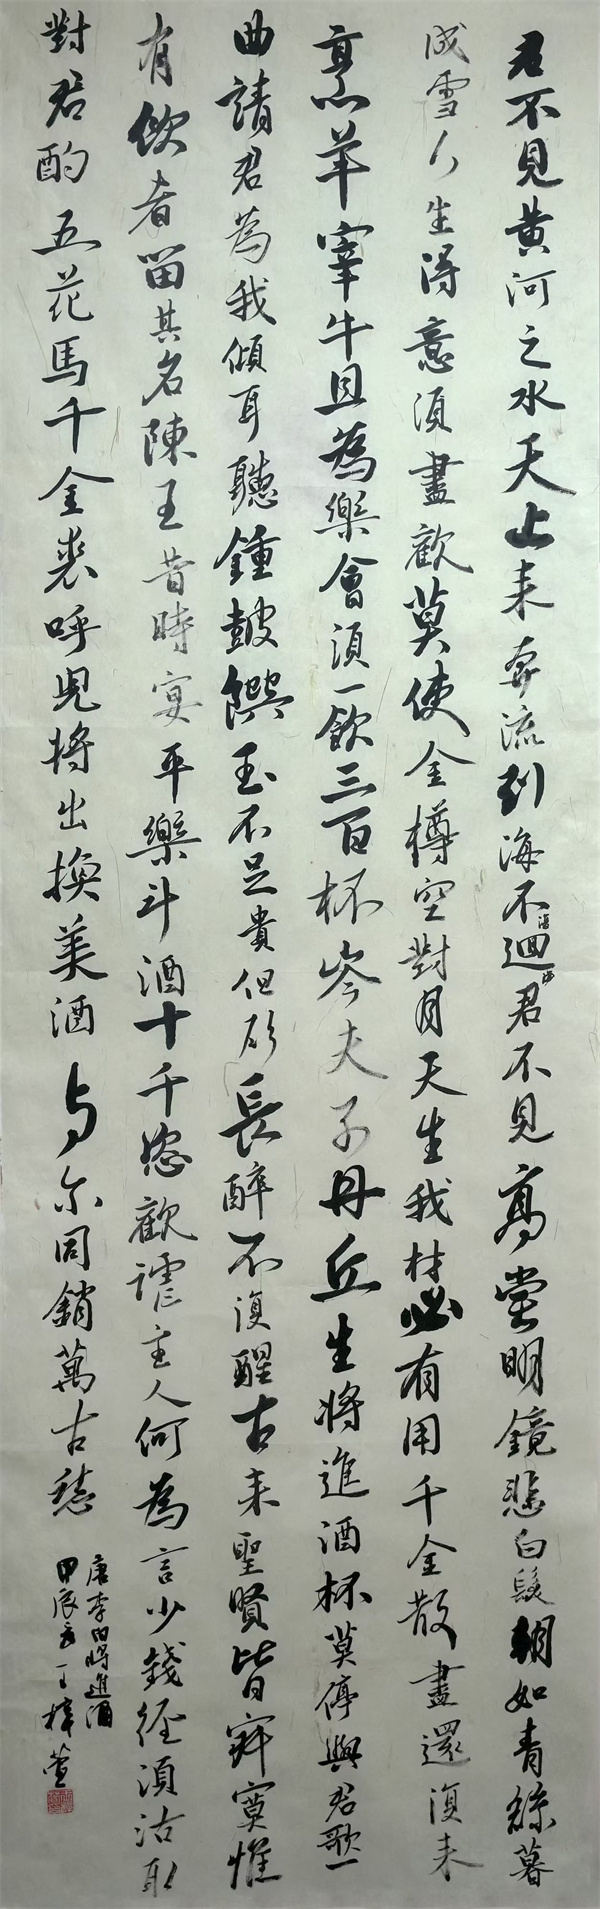 君不見黃河之水天上来奔流到海不迴君不見高堂明鏡悲白髮朝如青絲暮
成雪人生得意須盡歡莫使金樽空對月天生我材必有用千金散盡還復来
烹羊宰牛且為樂會須一飲三百杯岑夫子丹丘生將進酒杯莫停與君歌一
曲請君為我傾耳聽鍾鼓饌玉不足貴但願長醉不復醒古来聖賢皆寂寞惟
有飲者留其名陳王昔時宴平樂斗酒十千恣歡謔主人何為言少錢徑須沽取
對君酌五花馬千金裘呼兒將出換美酒与尔同銷萬古愁
唐李白將進酒
甲辰玄丁梓萱